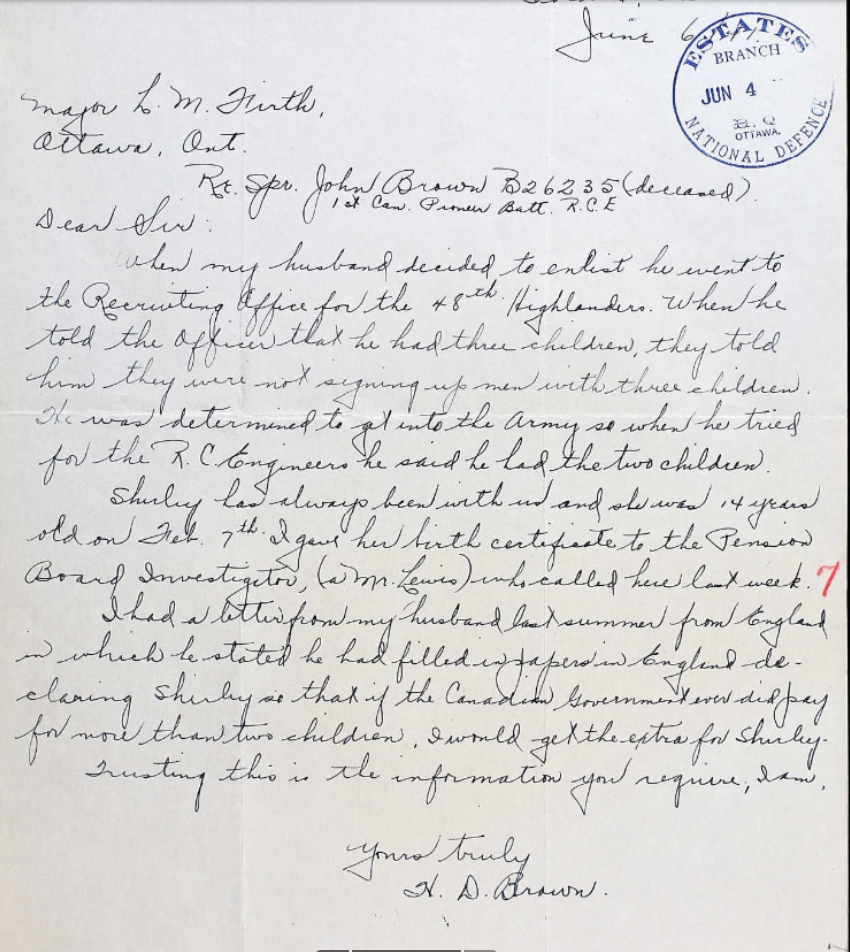 June 6
ESTATES
BRANCH
JUN 4
H.Q
OTTAWA.
NATIONAL DEFENCE
Major L. M. Firth,
Ottawa, Ont.
Re. Spr. John Brown B26235 (deceased).
1st Can. Pioneer Batt. R.C.E
Dear Sir:
When my husband decided to enlist he went to
the Recruiting Office for the 48th Highlanders. When he
told the Officer that he had three children, they told
him they were not signing up men with three children.
He was determined to get into the Army so when he tried
for the R.C. Engineers he said he had the two children.
Shirley has always been with us and she was 14 years
old on Feb. 7th. I gave her birth certificate to the Pension
Board Investigator, (a Mr. Lewis) who called here last week. 7
I had a letter from my husband last summer from England
in which he stated he had filled in papers in England de-
claring Shirley so that if the Canadian Government ever did pay
for more than two children, I would get the extra for Shirley.
Trusting this is the information you require, I am,
Yours truly
H. D. Brown.